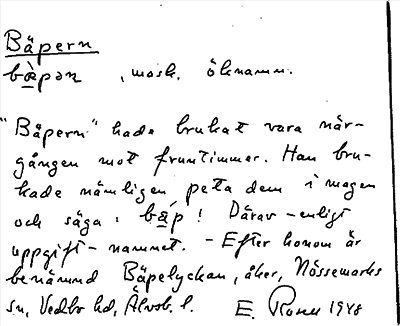 Bäpern
bæ̀pən , mask. öknamn.
"Bäpern" hade brukat vara när-
gången mot fruntimmer. Han bru-
kade nämligen peta dem i magen
och säga: bæ̀p! Därav – enligt
uppgift – namnet. – Efter honom är
benämnd Bäpelyckan, åker, Nössemarks
sn, Vedbo hd, Älvsb. l. E. Rosell 1948